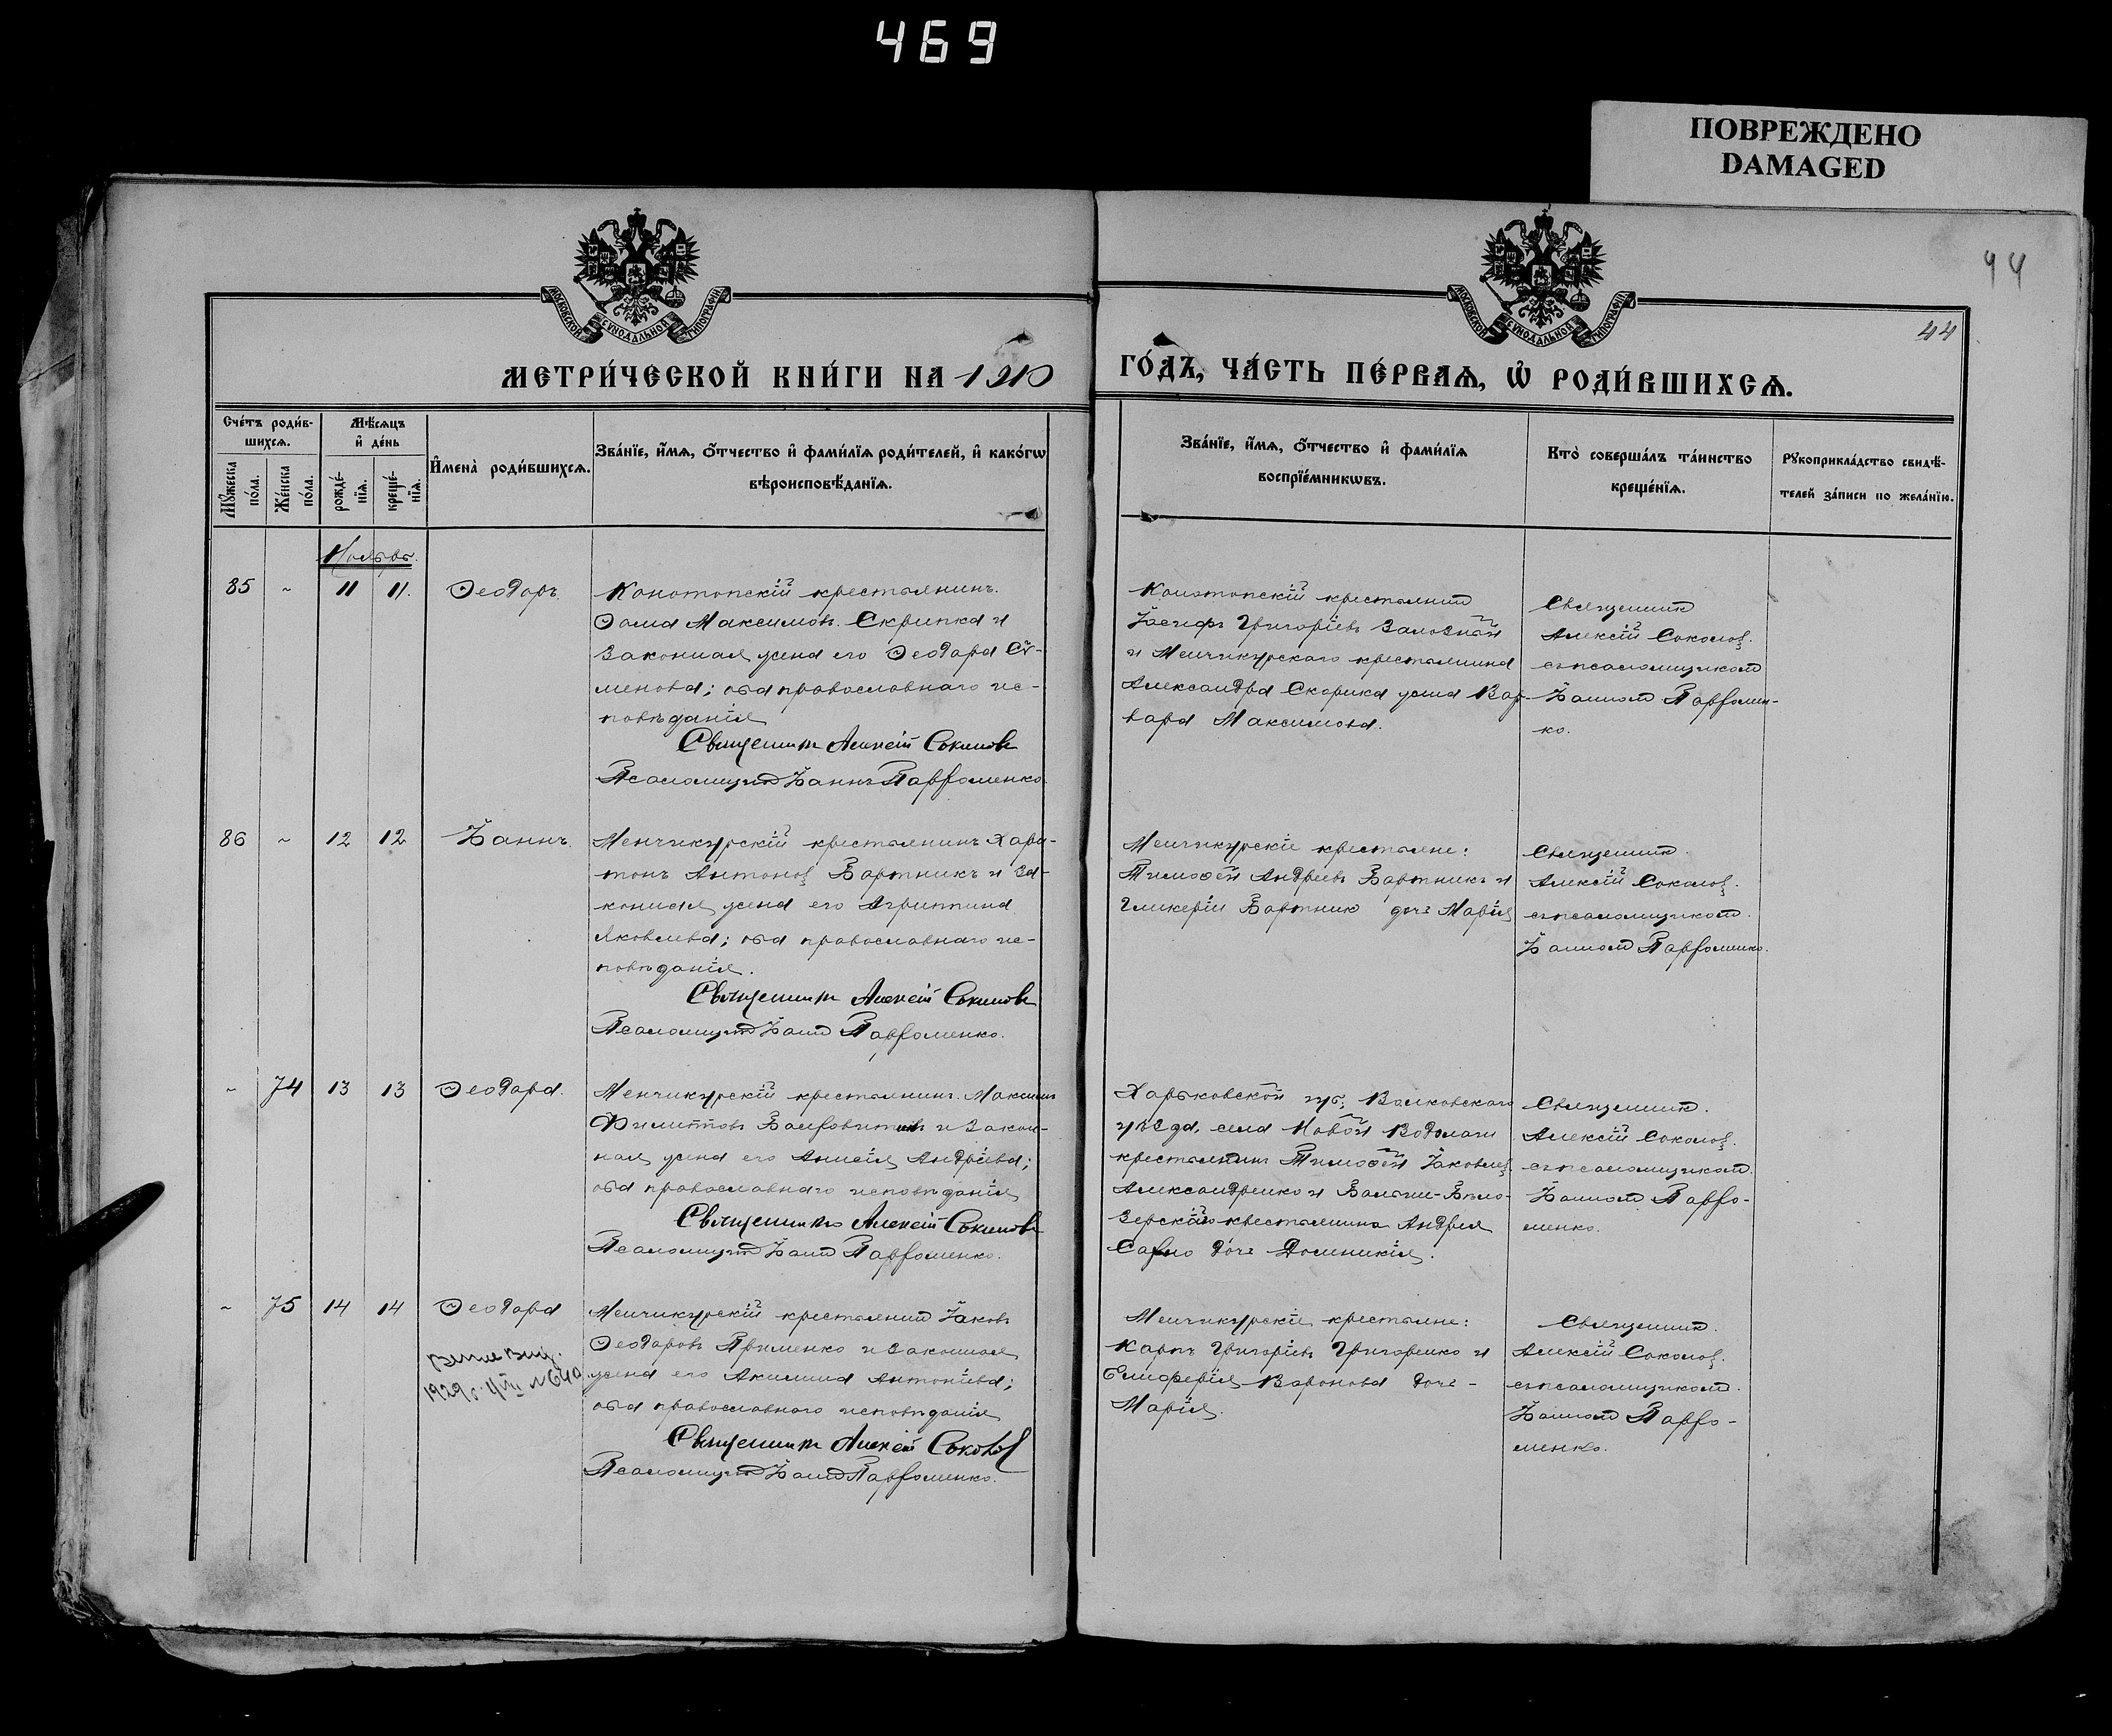 469
ПОВРЕЖДЕНО
DAMAGED
44
44
МОСКОВСКОЙ СѴНОДАЛЬНОЙ ТИПОГРАФІИ
МОСКОВСКОЙ СѴНОДАЛЬНОЙ ТИПОГРАФІИ
МЕТРИ́ЧЕСКОЙ КНИ́ГИ НА 1910 ГО́ДЪ, ЧА́СТЬ ПЕ́РВАѦ, Ѡ҆ РОДИ́ВШИХСѦ.
Сче́тъ роди́в-
шихсѧ.
Мѣ́сѧцъ
и҆ де́нь
Мꙋ́жеска
по́ла.
Же́нска
по́ла.
рожде́-
нїѧ.
креще́-
нїѧ.
И҆мена̀ роди́вшихсѧ.
Зва́нїе, и҆́мѧ, ѻ҆́тчество и҆ фами́лїѧ роди́телей, и҆ како́гѡ
вѣроисповѣ́данїѧ.
Зва́нїе, и҆́мѧ, ѻ҆́тчество и҆ фами́лїѧ
воспрїе́мникѡвъ.
Кто̀ соверша́лъ та́инство
креще́нїѧ.
Рꙋкоприкла́дство свидѣ́-
телей за́писи по жела́нїю.
Ноябрь.
85 ~ 11 11. Ѳеодоръ.
Конотопскій крестьянинъ.
Ѳома Максимовъ Скрипка и
законная жена его Ѳеодора Си-
менова; оба православнаго ис-
повѣданія
Священникъ Алексій Соколовъ
Псаломщикъ Іоаннъ Парфоменко.
Конотопскій крестьянинъ
Іосифъ Григоріевъ Заложный
и Менчикурскаго крестьянина
Александра Скорика жена Вар-
вара Максимова.
Священникъ
Алексій Соколов.
съ псаломщикомъ
Іоанномъ Парфомен-
ко.
86 ~ 12 12 Іоаннъ.
Менчикурскій крестьянинъ Хари-
тонъ Антонов Вартникъ и за-
конная жена его Агриппина
Яковлева; оба православнаго ис-
повѣданія.
Священникъ Алексій Соколовъ
Псаломщикъ Іоаннъ Парфоменко.
Менчикурскіе крестьяне:
Тимоѳей Андреевъ Вартникъ и
Гликеріи Вартник дочь Марія
Священникъ.
Алексій Соколов.
съ псаломщикомъ.
Іоанномъ Парфоменко.
~ 74 13 13 Ѳеодора.
Менчикурскій крестьянинъ Максимъ
Филипповъ и закон-
ная жена его Анисія Андрієва;
оба православнаго исповѣданія
Священникъ Алексій Соколовъ
Псаломщикъ Іоаннъ Парфоменко.
Харьковской губ, Валковскаго
уѣзда, села Новой Водолаги
крестьянинъ Тимоѳей Іаковлев
Александренко и Вальчи-Бѣло-
зерскаго крестьянина Андрея
Сафно дочь Домникія.
Священникъ.
Алексій Соколов.
съ псаломщикомъ.
Іоанномъ Парфо-
менко.
~ 75 14 14 Ѳеодора
1929 г. № 640.
Менчикурскій крестьянинъ Іаковъ
Ѳеодоровъ Яременко и законная
жена его Акилина Антонієва;
оба православнаго исповѣданія
Священникъ Алексій Соколов
Псаломщикъ Іоаннъ Парфоменко.
Менчикурскіе крестьяне:
Карпъ Григоріевъ Григоренко и
Елифорія Воронова дочь -
Марія.
Священникъ.
Алексій Соколов.
съ псаломщикомъ.
Іоанномъ Парфо-
менко.